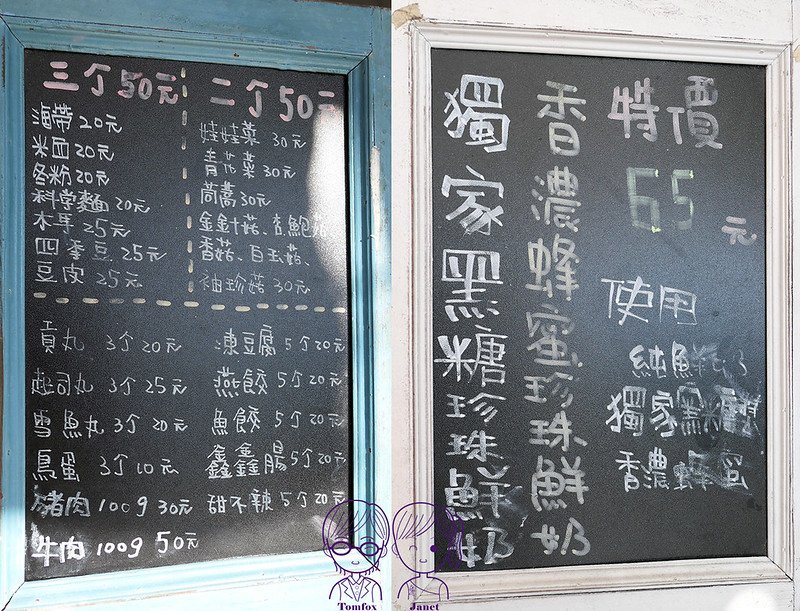 三个50元
海帶20元
米血20元
冬粉20元
科学麵20元
木耳25元
四季豆25元
豆皮25元
二个50元
娃娃菜30元
青花菜30元
茼蒿30元
金針菇、杏鮑菇
香菇、白玉菇、
袖珍菇30元
貢丸 3个20元
起司丸 3个25元
雪魚丸 3个20元
鳥蛋 3个10元
豬肉100g 30元
牛肉100g 50元
凍豆腐5个20元
燕餃5个20元
魚餃5个20元
鑫鑫腸5个20元
甜不辣5个20元
獨家黑糖珍珠鮮奶
香濃蜂蜜珍珠鮮奶
特價
65
元
使用
純鮮奶
獨家黑糖
香濃蜂蜜
Tomfox
Janet